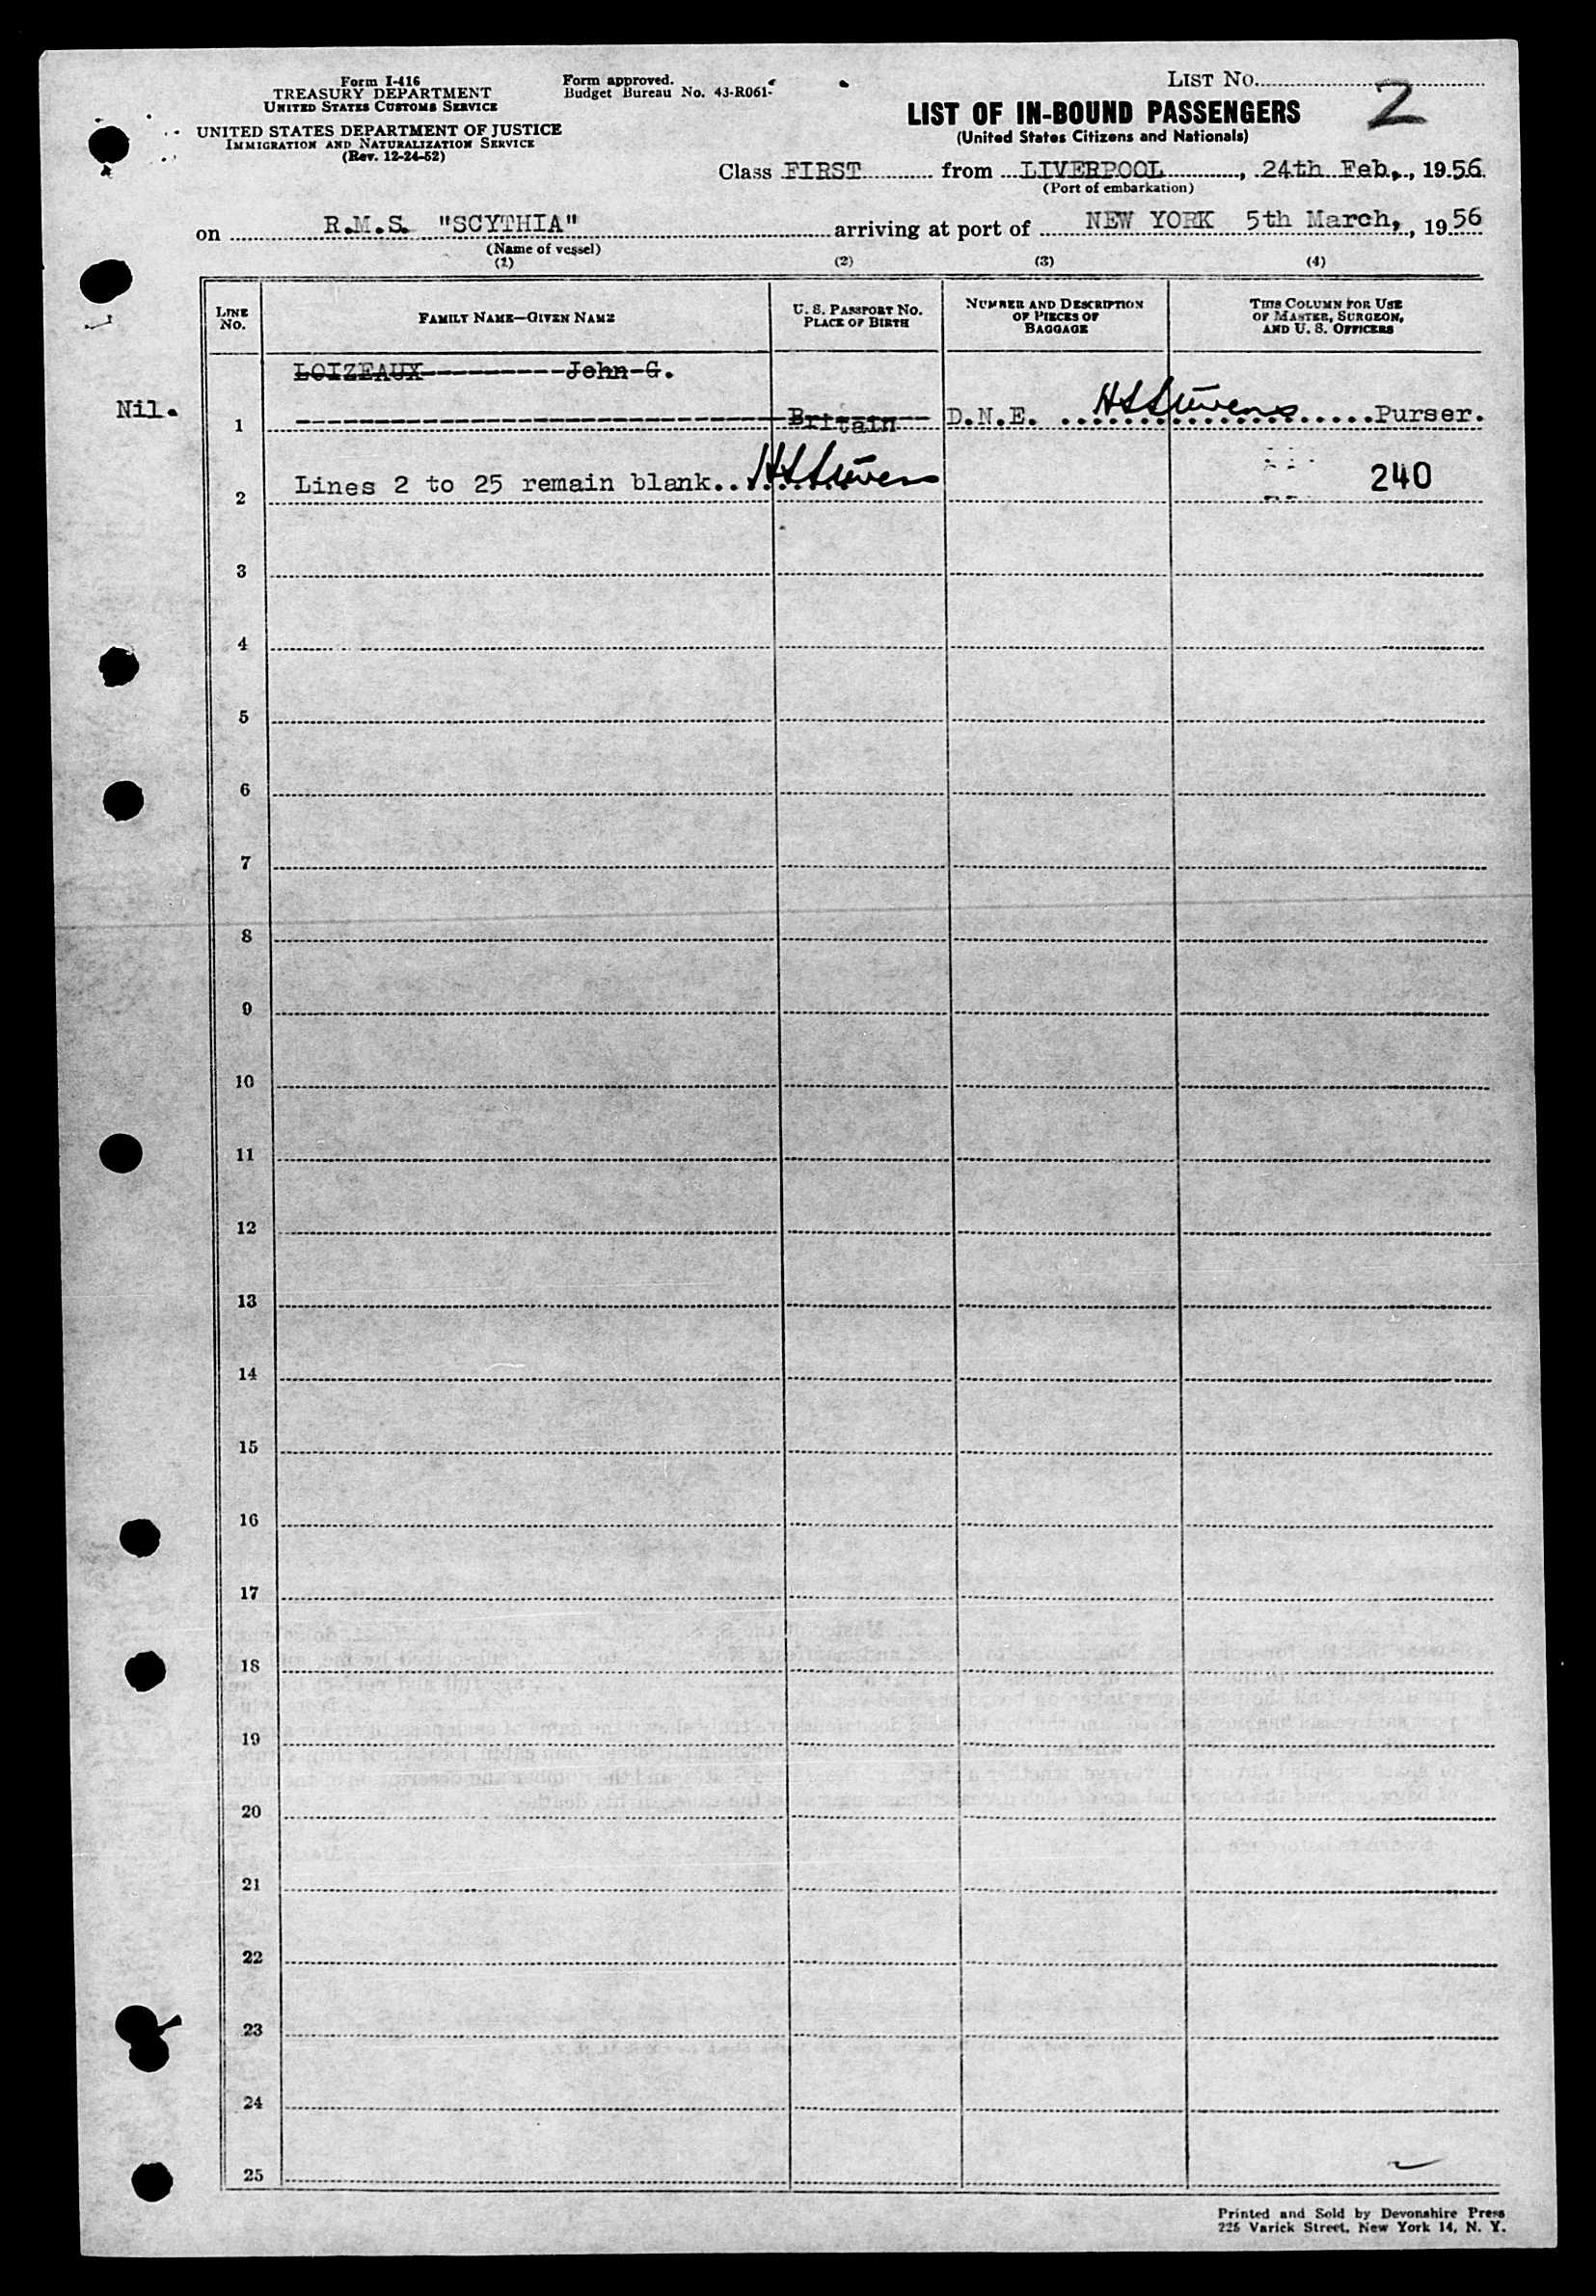 Form I-416
TREASURY DEPARTMENT
UNITED STATES CUSTOMS SERVICE
UNITED STATES DEPARTMENT OF JUSTICE
IMMIGRATION AND NATURALIZATION SERVICE
(Rev. 12-24-52)
Form approved.
Budget Bureau No. 43-R061-
LIST No.
2
LIST OF IN-BOUND PASSENGERS
(United States Citizens and Nationals)
Class FIRST from LIVERPOOL, 24th Feb., 1956
(Port of embarkation)
on R.M.S. "SCYTHIA" arriving at port of NEW YORK 5th March, 1956
(Name of vessel)
(1) (2) (3) (4)
LINE No. FAMILY NAME—GIVEN NAME U. S. PASSPORT NO. PLACE OF BIRTH NUMBER AND DESCRIPTION OF PIECES OF BAGGAGE THIS COLUMN FOR USE OF MASTER, SURGEON, AND U. S. OFFICERS
LOIZEAUX----------John G.
Nil. 1 Britain D.N.E. H S Stevens Purser.
2 Lines 2 to 25 remain blank.. H S Stevens 240
3
4
5
6
7
8
9
10
11
12
13
14
15
16
17
18
19
20
21
22
23
24
25
Printed and Sold by Devonshire Press
225 Varick Street, New York 14, N. Y.